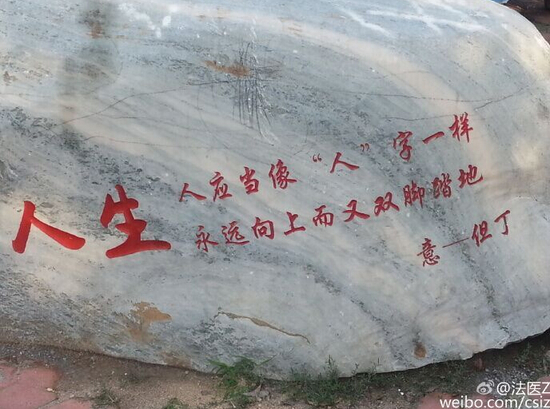 人生
人应当像“人”字一样
永远向上而又双脚踏地
意—但丁
@法医Z
weibo.com/csiz